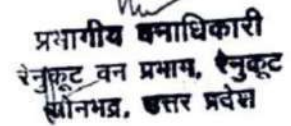 प्रभागीय वनाधिकारी
रेनुकूट वन प्रभाग, रेनुकूट
सोनभद्र, उत्तर प्रदेश